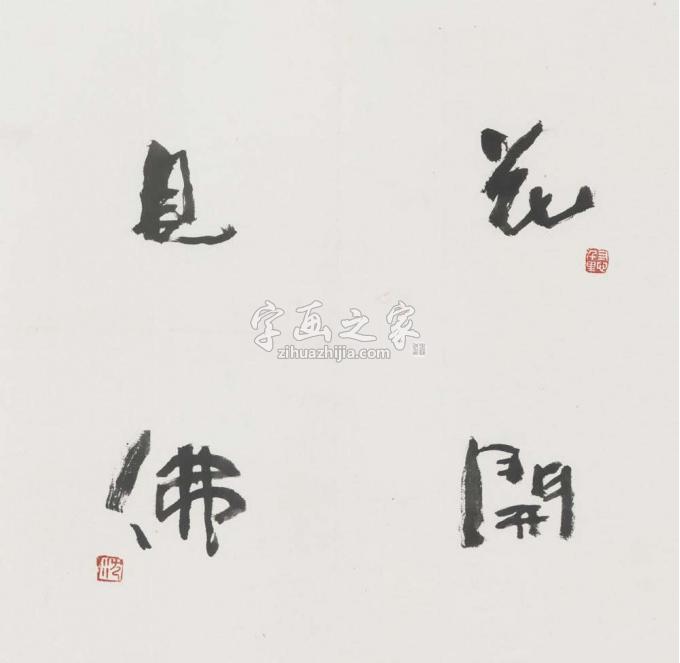 花開
見佛
字画之家
zihuazhijia.com